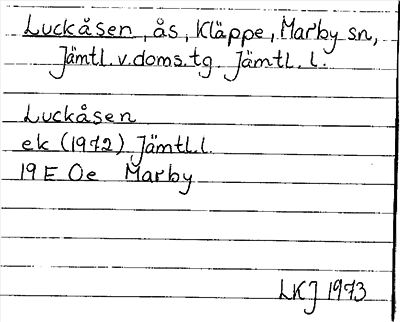 Luckåsen, ås, Kläppe, Marby sn,
Jämtl.v.doms.tg Jämtl.l.
Luckåsen
ek (1972) Jämtl.l.
19 E Oe Marby
LKJ 1973